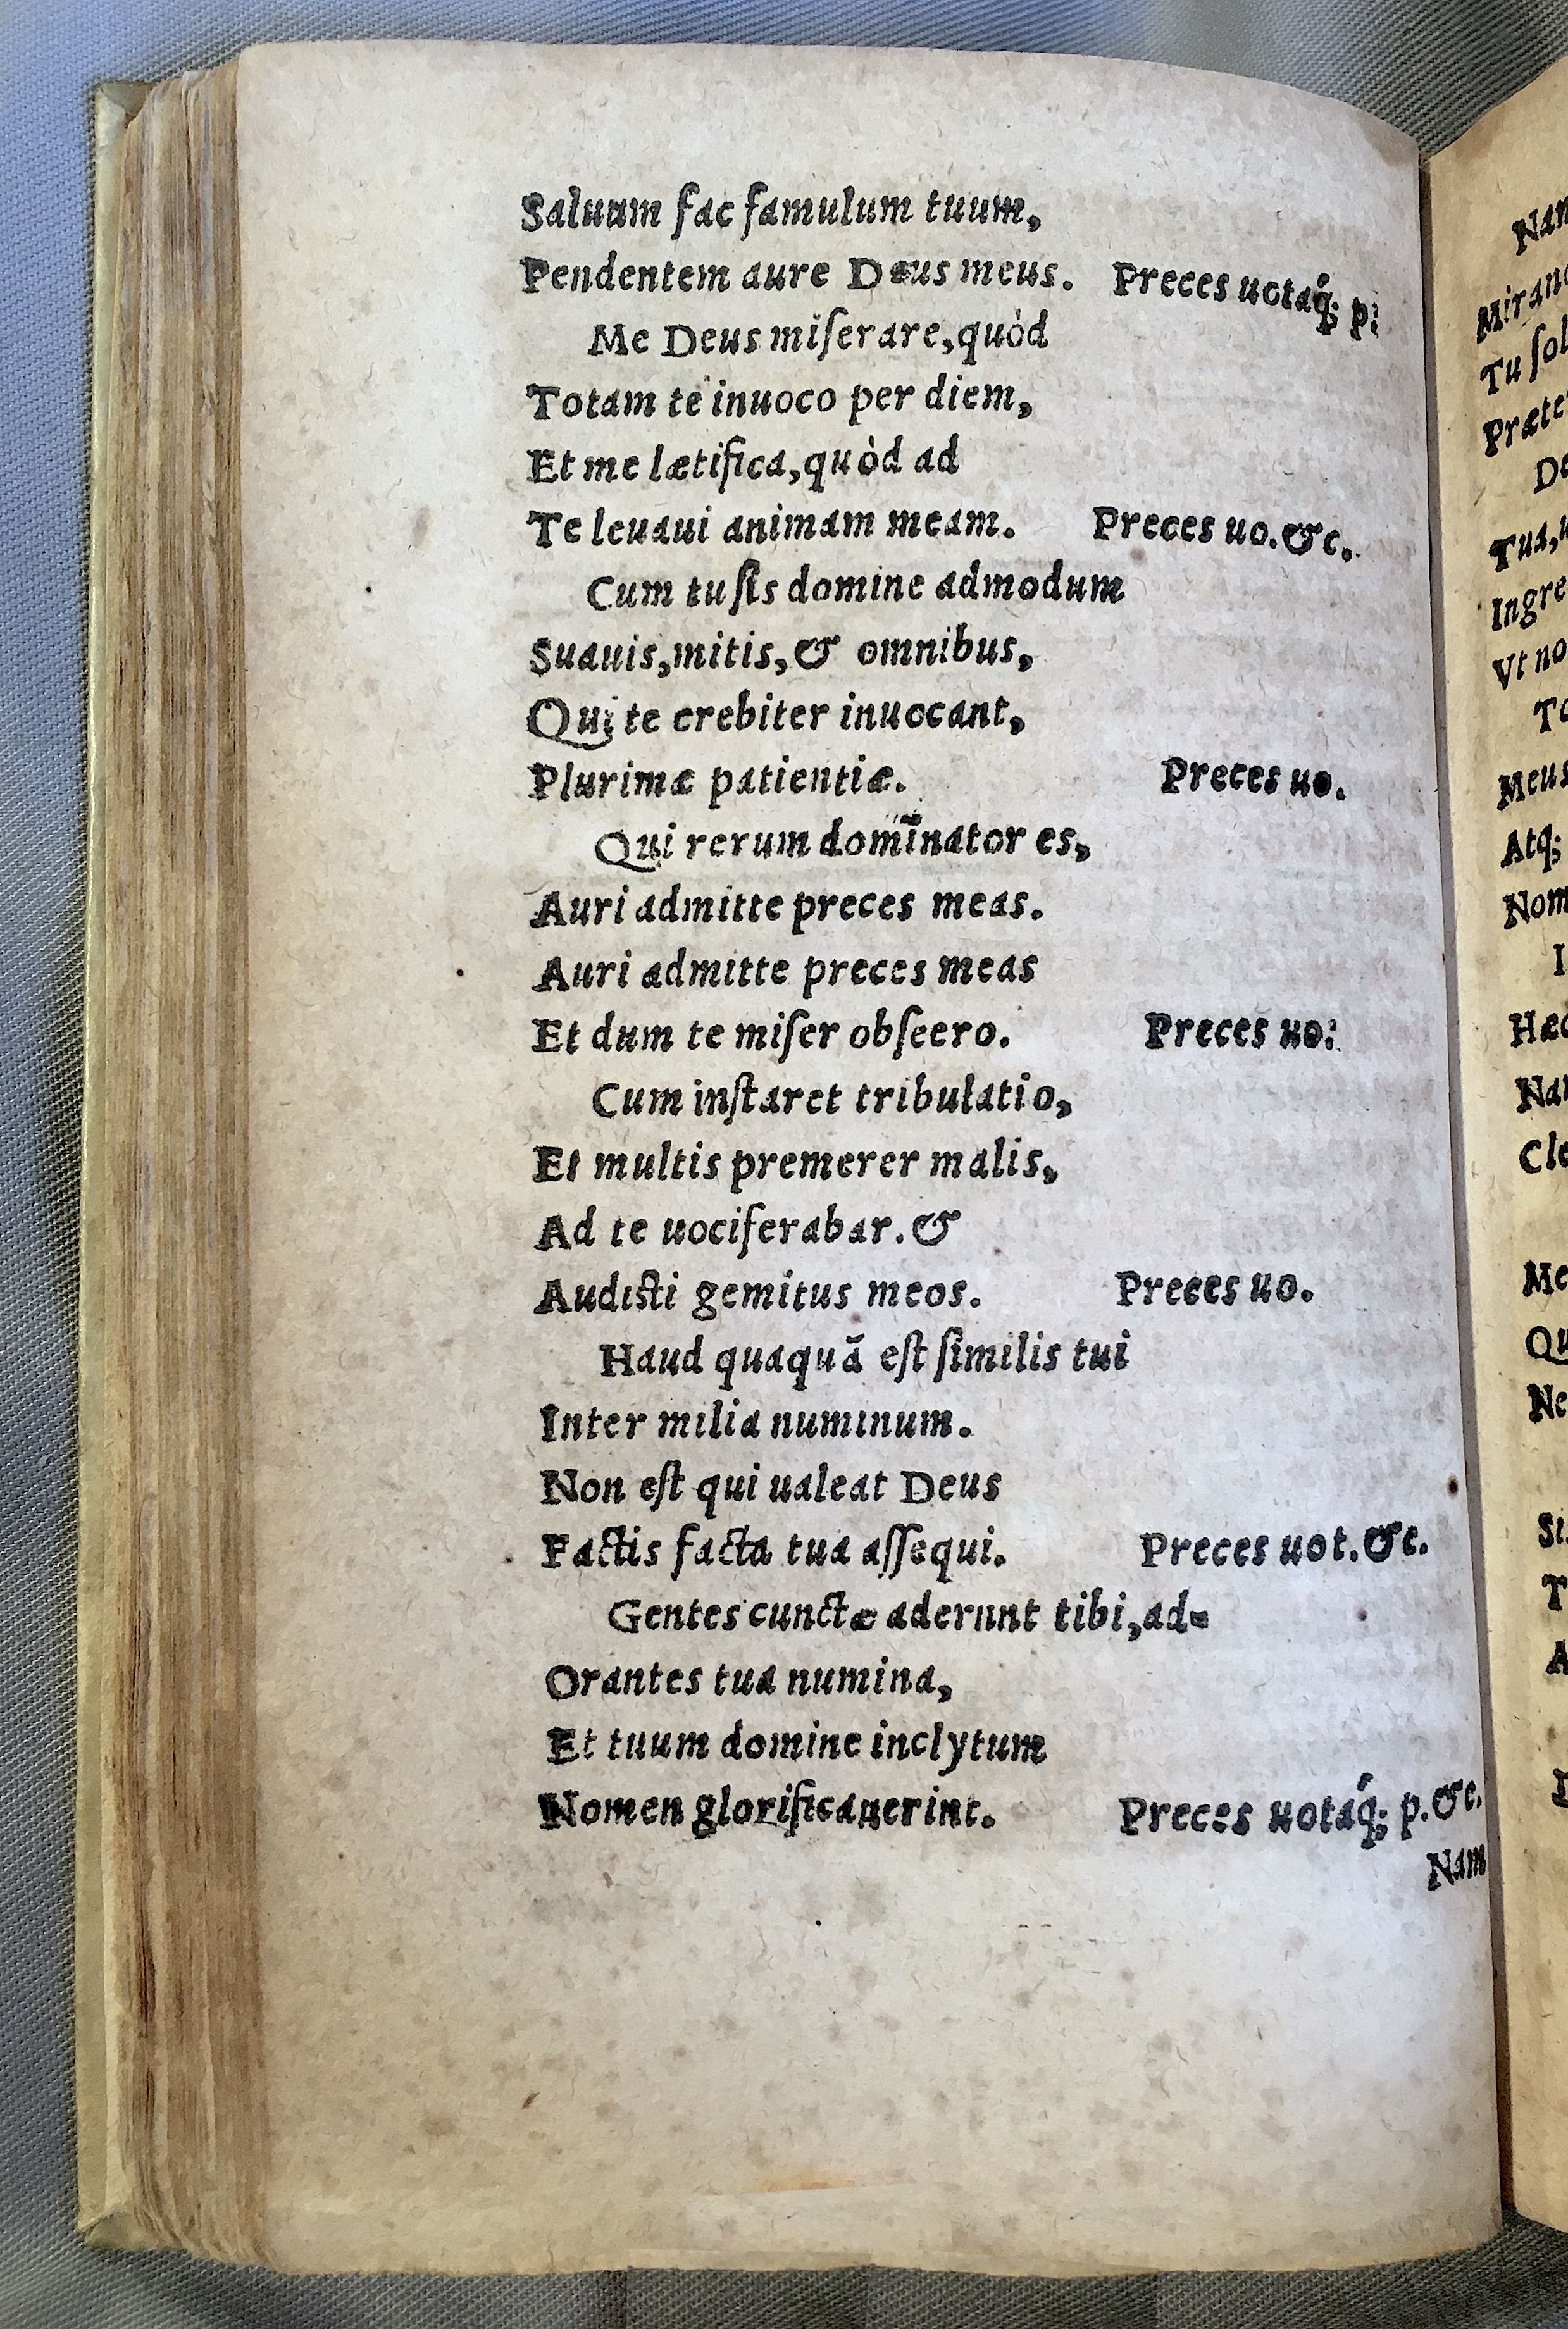 Saluum fac famulum tuum,
Pendentem aure Deus meus. Preces uotaq́; p:
Me Deus miſerare, quòd
Totam te inuoco per diem,
Et me lætifica, quòd ad
Te leuaui animam meam. Preces uo. &c.
Cum tu ſis domine admodum
Suauis, mitis, & omnibus,
Qui te crebiter inuocant,
Plurimæ patientiæ. Preces uo.
Qui rerum domīnator es,
Auri admitte preces meas.
Auri admitte preces meas
Et dum te miſer obſecro. Preces uo:
Cum inſtaret tribulatio,
Et multis premerer malis,
Ad te uociferabar. &
Audiſti gemitus meos. Preces uo.
Haud quaquā eſt ſimilis tui
Inter milia numinum.
Non eſt qui ualeat Deus
Factis facta tua aſſequi. Preces uot. &c.
Gentes cunctæ aderunt tibi, ad=
Orantes tua numina,
Et tuum domine inclytum
Nomen glorificauerint. Preces uotaq́; p. &c.
Nam
Mirand
Tu ſol
Præte
De
Tua, u
Ingre
Vt no
To
Meus
Atq;
Nom
I
Hæc
Na
Cle
Me
Qu
Ne
Si
T
A